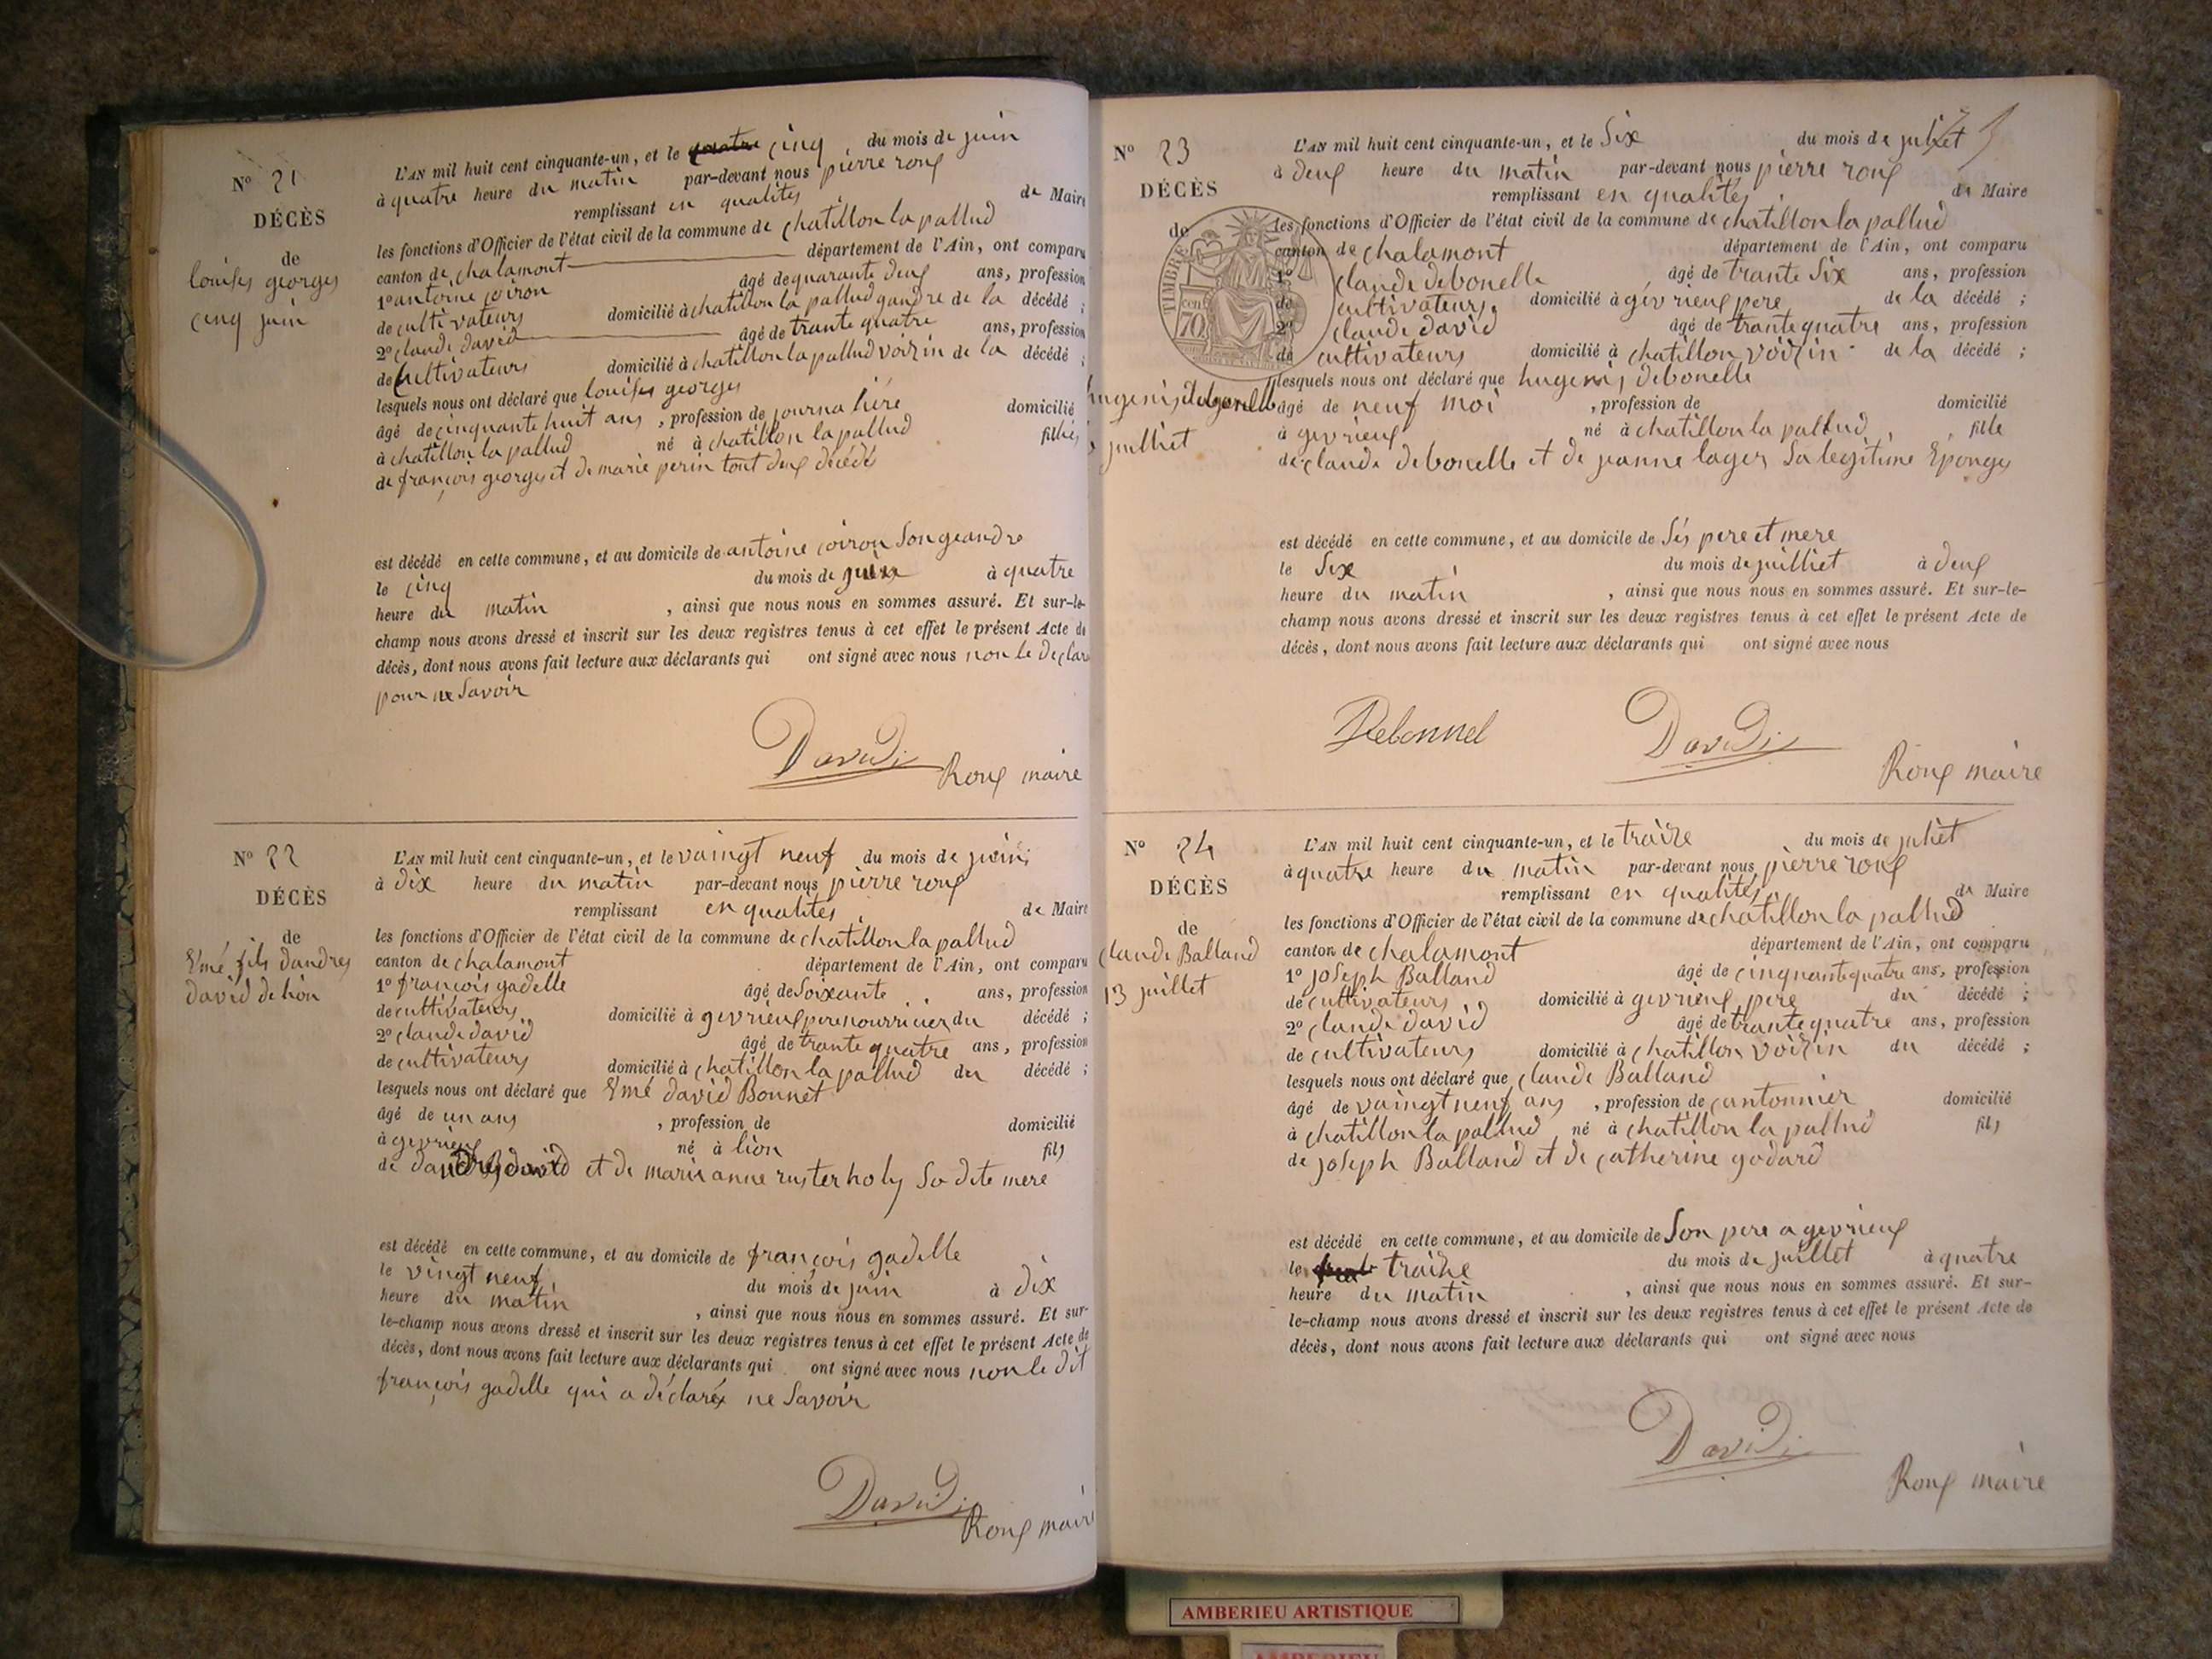 N° 21
DÉCÈS
de
louises georges
cinq juin
L'AN mil huit cent cinquante-un, et le quatre cinq du mois de juin
à quatre heure du matin par-devant nous pierre roux
remplissant en qualités de Maire
les fonctions d'Officier de l'état civil de la commune de chatillon la pallud
canton de chalamont département de l'Ain, ont comparu
1° antoine coiron âgé de quarante deux ans, profession
de cultivateurs domicilié à chatillon la pallud gandre de la décédé ;
2° claude david âgé de trante quatre ans, profession
de Cultivateurs domicilié à chatillon la pallud voizin de la décédé ;
lesquels nous ont déclaré que louises georges
âgé de cinquante huit ans , profession de journalière domicilié
à chatillon la pallud né à chatillon la pallud filles
de françois georges et de marie perin tout deux décédés
est décédé en cette commune, et au domicile de antoine coiron Son geandre
le cinq du mois de juin à quatre
heure du matin , ainsi que nous nous en sommes assuré. Et sur-le-
champ nous avons dressé et inscrit sur les deux registres tenus à cet effet le présent Acte de
décès, dont nous avons fait lecture aux déclarants qui ont signé avec nous non le declare
pour ne Savoir
David
Roux maire
N° 22
DÉCÈS
de
Emé fils dandres
david de lion
L'AN mil huit cent cinquante-un, et le vaingt neuf du mois de juin
à dix heure du matin par-devant nous pierre roux
remplissant en qualités de Maire
les fonctions d'Officier de l'état civil de la commune de chatillon la pallud
canton de chalamont département de l'Ain, ont comparu
1° françois gadelle âgé de Soixante ans, profession
de cultivateurs domicilié à gevrieux pere nourricier du décédé ;
2° claude david âgé de trante quatre ans, profession
de cultivateurs domicilié à chatillon la pallud du décédé ;
lesquels nous ont déclaré que Emé david Bonnet
âgé de un ans , profession de domicilié
à gevrieux né à lion fils
de dandres david et de marie anne rusterholy Sa dite mere
est décédé en cette commune, et au domicile de françois gadelle
le vingt neuf du mois de juin à dix
heure du matin , ainsi que nous nous en sommes assuré. Et sur-
le-champ nous avons dressé et inscrit sur les deux registres tenus à cet effet le présent Acte de
décès, dont nous avons fait lecture aux déclarants qui ont signé avec nous non le dit
françois gadelle qui a déclaré ne Savoir
David
Roux maire
N° 23
DÉCÈS
de
hugenis debonelle
6 juilliet
TIMBRE
70 cent
L'AN mil huit cent cinquante-un, et le Six du mois de juliet
à deux heure du matin par-devant nous pierre roux
remplissant en qualités de Maire
les fonctions d'Officier de l'état civil de la commune de chatillon la pallud
canton de chalamont département de l'Ain, ont comparu
1° claude debonelle âgé de trante Six ans, profession
de cultivateurs, domicilié à gevrieux pere de la décédé ;
2° claude david âgé de trante quatre ans, profession
de cultivateurs domicilié à chatillon voizin de la décédé ;
lesquels nous ont déclaré que hugenis debonelle
âgé de neuf moi , profession de domicilié
à gevrieux né à chatillon la pallud, fille
de claude debonelle et de jeanne lager Sa legitime Epouges
est décédé en cette commune, et au domicile de Ses pere et mere
le Six du mois de juilliet à deux
heure du matin , ainsi que nous nous en sommes assuré. Et sur-le-
champ nous avons dressé et inscrit sur les deux registres tenus à cet effet le présent Acte de
décès, dont nous avons fait lecture aux déclarants qui ont signé avec nous
Debonnel David
Roux maire
N° 24
DÉCÈS
de
claude Balland
13 juillet
L'AN mil huit cent cinquante-un, et le traize du mois de juliet
à quatre heure du matin par-devant nous pierre roux
remplissant en qualités de Maire
les fonctions d'Officier de l'état civil de la commune de chatillon la pallud
canton de chalamont département de l'Ain, ont comparu
1° joseph Balland âgé de cinquante quatre ans, profession
de cultivateurs, domicilié à gevrieux pere du décédé ;
2° claude david âgé de trante quatre ans, profession
de cultivateurs domicilié à chatillon voizin du décédé ;
lesquels nous ont déclaré que claude Balland
âgé de vaingt neuf ans , profession de cantonnier domicilié
à chatillon la pallud né à chatillon la pallud fils
de joseph Balland et de catherine godard
est décédé en cette commune, et au domicile de Son pere a gevrieux
le traize du mois de juillet à quatre
heure du matin , ainsi que nous nous en sommes assuré. Et sur-
le-champ nous avons dressé et inscrit sur les deux registres tenus à cet effet le présent Acte de
décès, dont nous avons fait lecture aux déclarants qui ont signé avec nous
David
Roux maire
AMBERIEU ARTISTIQUE
AMBERIEU